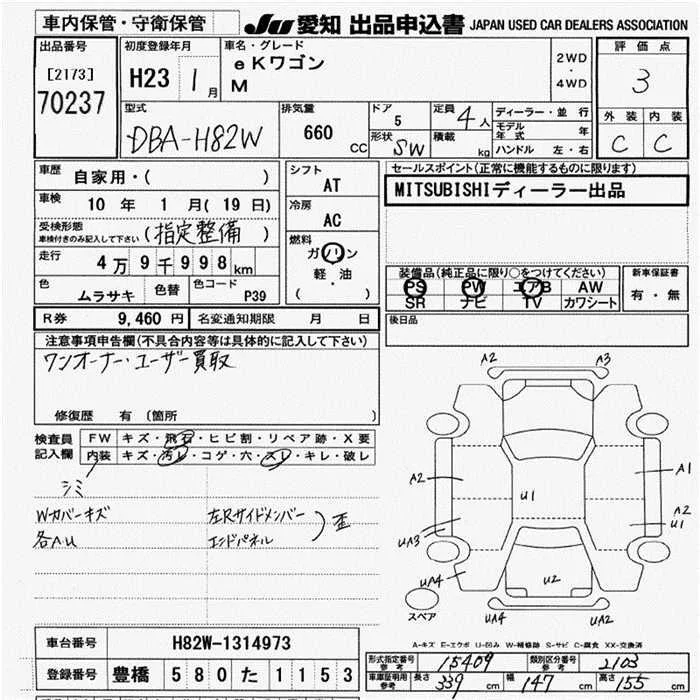 車内保管・守衛保管
JU 愛知 出品申込書 JAPAN USED CAR DEALERS ASSOCIATION
出品番号
[2173]
70237
初度登録年月
H23 1月
車名・グレード
eKワゴン
M
2WD
・
4WD
評価点
3
外装 内装
C C
型式
DBA-H82W
排気量
660 CC
ドア
5
形状
SW
定員 4人
積載 kg
ディーラー・並行
モデル年式 年
ハンドル 左・右
車歴
自家用・( )
車検
10年 1月(19日)
受検形態
車検付きのみ記入して下さい
(指定整備)
走行
4万9千998km
色
ムラサキ
色替
色コード
P39
シフト
AT
冷房
AC
燃料
ガソリン
軽・油
( )
セールスポイント(正常に機能するものに限ります)
MITSUBISHIディーラー出品
装備品(純正品に限り○をつけてください)
PS PW エアB AW
SR ナビ TV カワシート
新車保証書
有・無
後日品
R券 9,460円 名変通知期限 月 日
注意事項申告欄(不具合内容等は具体的に記入して下さい)
ワンオーナー・ユーザー買取
修復歴 有(箇所 )
検査員
記入欄
FW キズ・飛石・ヒビ割・リペア跡・X要
内装 キズ・汚レ・コゲ・穴・スレ・キレ・破レ
シミ
Wカバーキズ
各ヘU
左Rサイドメンバー
エンドパネル
)歪
A2 A3
A2 A1
U1
A2
U1
UA3
UA4
U2
UA4 UA2
スペア
A-キズ E-エクボ U-凹み W-補修跡 S-サビ C-腐食 XX-交換済
車台番号 H82W-1314973
登録番号 豊橋 580 た 1153
形式指定番号
参考
15409
類別区分番号
参考
2103
車庫証明用
参考
長さ 339cm 幅 147cm 高さ 155cm